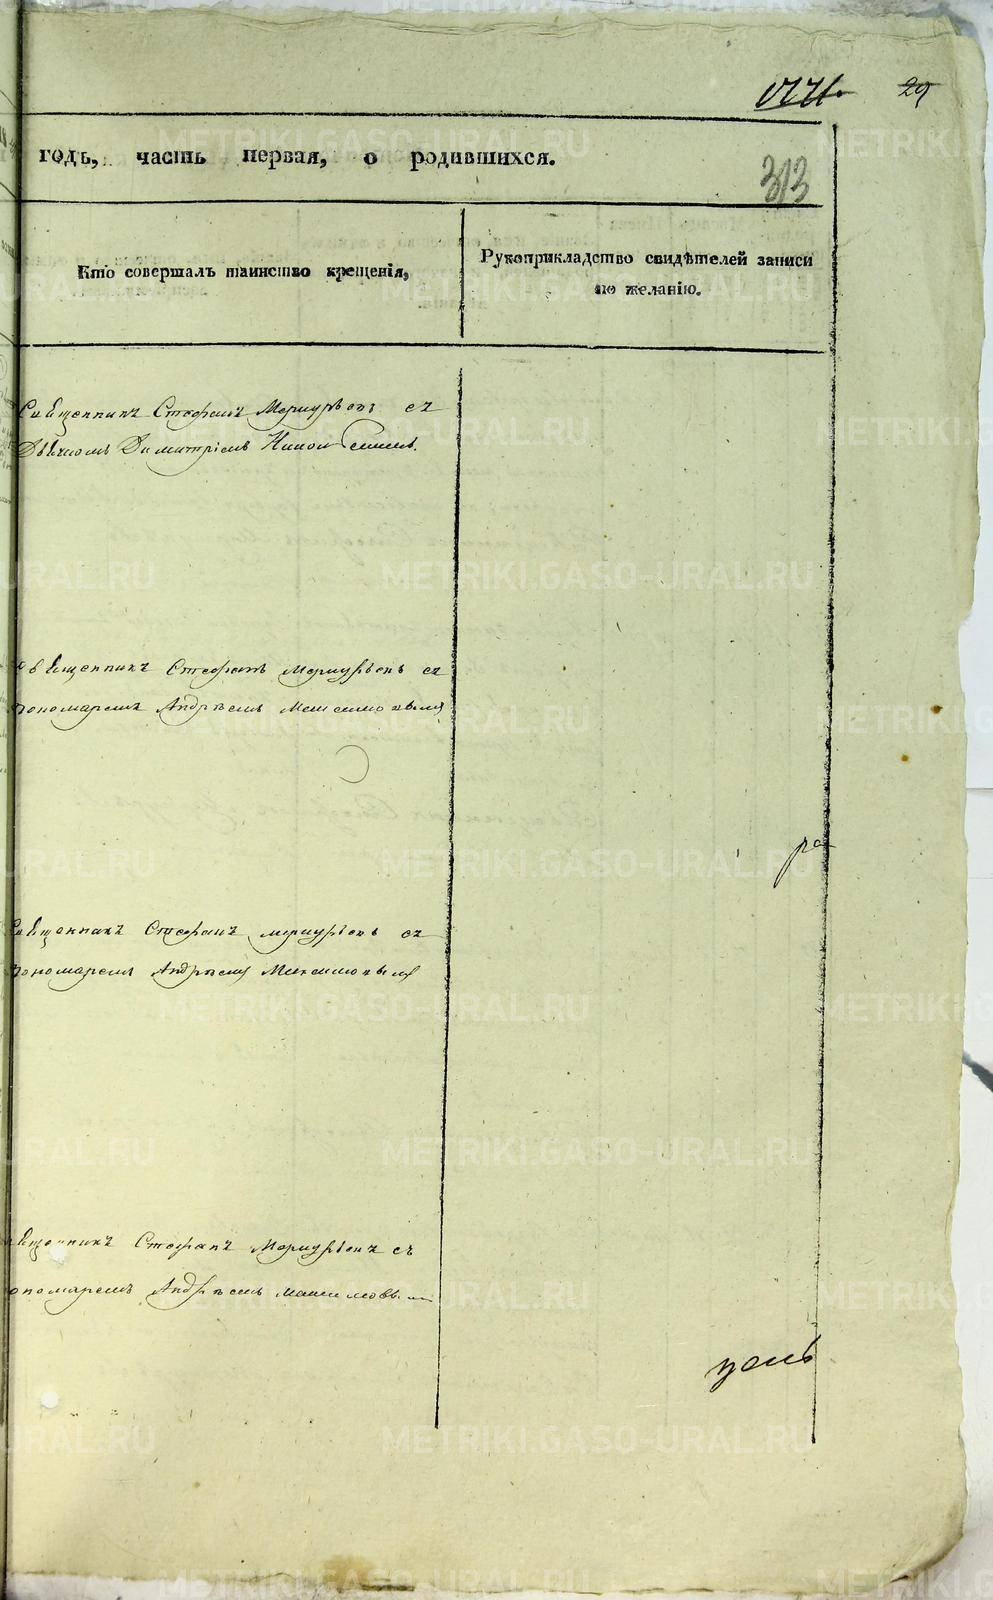 29
313
годъ, часть первая, о родившихся.
Кто совершалъ таинство крещенія,
Рукоприкладство свидѣтелей записи
по желанію.
Священникъ Стефанъ Меркурьевъ съ
Дьячкомъ Димитріемъ
Священникъ Стефанъ Меркурьевъ съ
пономаремъ Андреемъ Максимовымъ
ра
Священникъ Стефанъ Меркурьевъ съ
пономаремъ Андреемъ Максимовымъ
вященникъ Стефанъ Меркурьевъ съ
ономаремъ Андреемъ Максимовым
METRIKI.GASO-URAL.RU